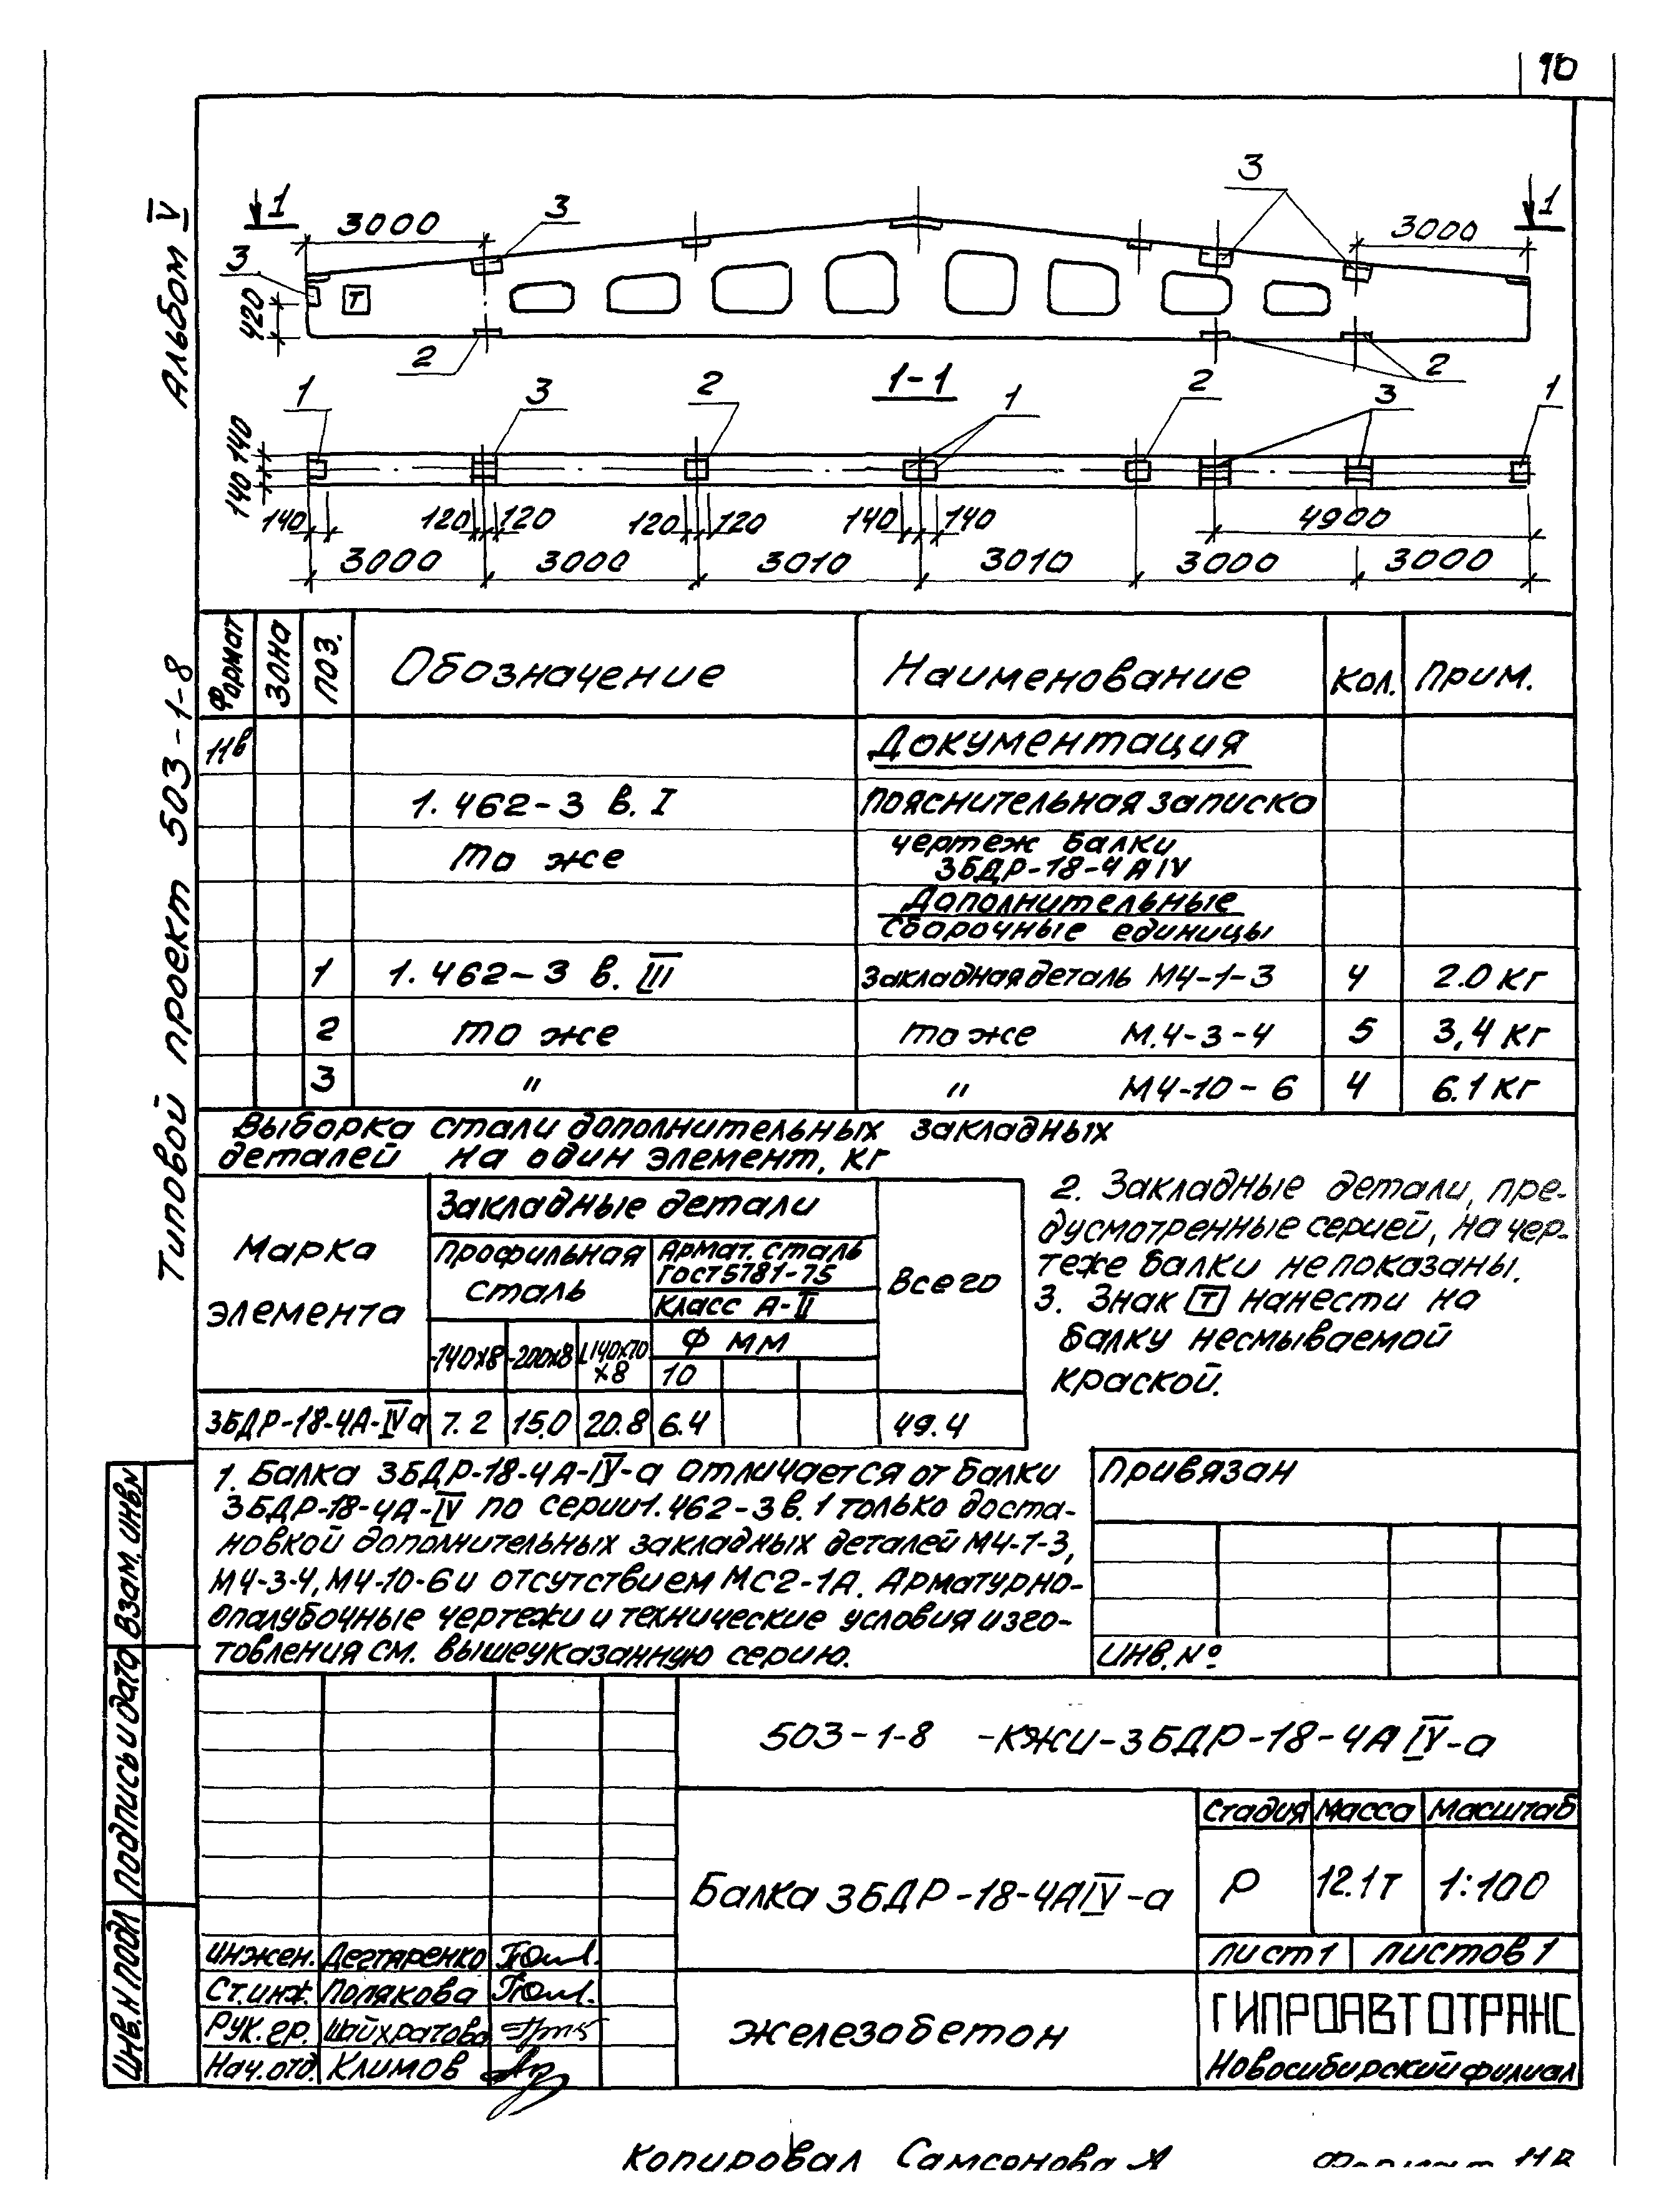 10
Альбом V
Типовой проект 503-1-8
1 1
3000 3 3 3000
3
Т
420
2 2
1-1
1 3 2 1 2 3 1
140 140
140 120 120 120 120 140 140 4900
3000 3000 3010 3010 3000 3000
Формат Зона Поз. Обозначение Наименование Кол. Прим.
11в Документация
1.462-3 в. I Пояснительная записка
то же чертеж балки
3БДР-18-4АIV
Дополнительные
сборочные единицы
1 1.462-3 в. III Закладная деталь М4-1-3 4 2.0 кг
2 то же то же М.4-3-4 5 3,4 кг
3 " " М4-10-6 4 6.1 кг
Выборка стали дополнительных закладных
деталей на один элемент, кг
Марка элемента Закладные детали Всего
Профильная сталь Армат. сталь ГОСТ5781-75
Класс А-II
Ф мм
-140х8 -200х8 L140х70х8 10
3БДР-18-4А-IVа 7.2 15.0 20.8 6.4 49.4
2. Закладные детали, пре-
дусмотренные серией, на чер-
теже балки не показаны.
3. Знак Т нанести на
балку несмываемой
краской.
1. Балка 3БДР-18-4А-IV-а отличается от балки
3БДР-18-4А-IV по серии 1.462-3 в.1 только доста-
новкой дополнительных закладных деталей М4-1-3,
М4-3-4, М4-10-6 и отсутствием МС2-1А. Арматурно-
опалубочные чертежи и технические условия изго-
товления см. вышеуказанную серию.
Привязан
Инв. №
Взам. инв.№
Подпись и дата
Инв. N подл
503-1-8 -КЖИ-3БДР-18-4АIV-а
Балка 3БДР-18-4АIV-а
Стадия Масса Масштаб
Р 12.1т 1:100
Лист 1 Листов 1
Инжен. Дегтяренко
Ст.инж. Полякова
Рук.гр. Шайхратова
Нач.отд. Климов
железобетон
ГИПРОАВТОТРАНС
Новосибирский филиал
Копировал Самсонова Формат 11В